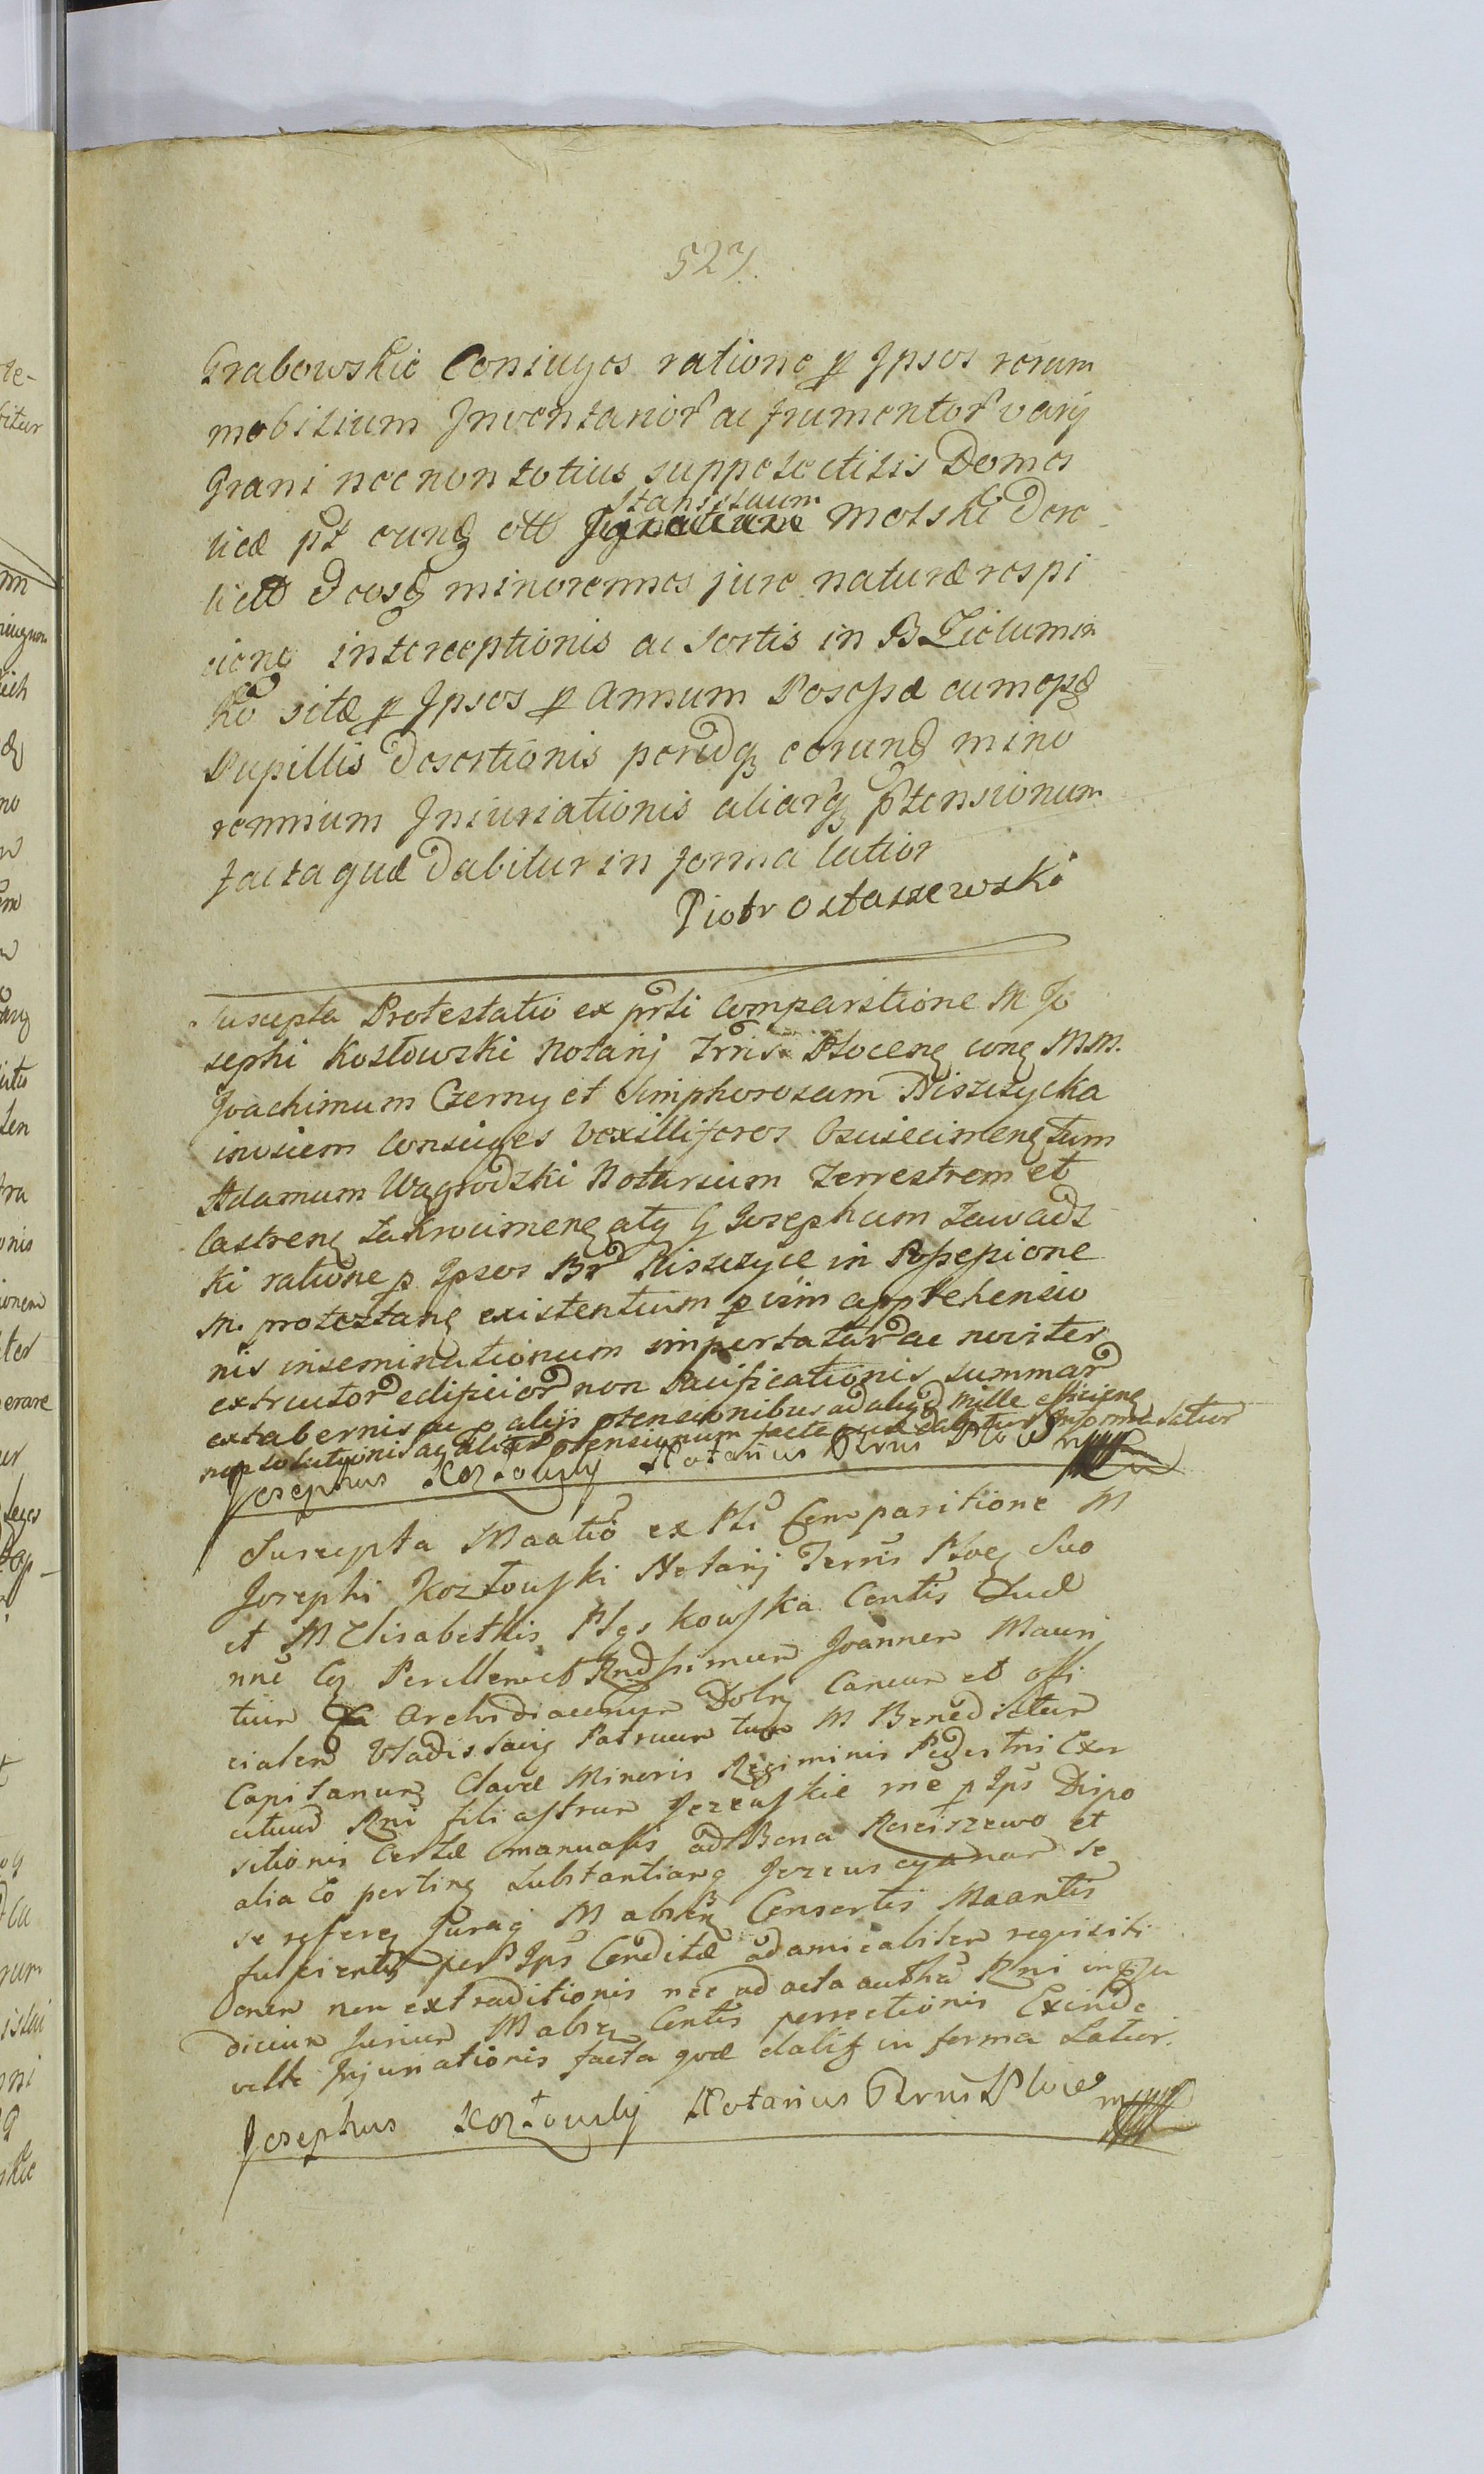 527.
Grabowskie Coniuges ratione p Ipsos rerum
mobilium Inventarior ac frumentor varij
Grani nec non totius suppelectilis Domes
ticæ pt eunq ott Stanislaum Molski dere
lictæ eosq minorennes jure naturæ respi
ciene interceptionis ac sortis in B Zielumin
ko sitæ p Ipsos p Annum Possessæ
Pupillis desertionis peridq eorunq mino
rennium Iniuriationis aliarq ptensionum
facta quæ dabitur in forma latior
Piotr Ostaszewski
Suscepta Protestatio ex prsti Comparitione M Jo
sephi Kozłowski Notarij Trris Plocenq conq MM.
Joachimum Czerny et Simphorosam Niszczycka
invicem Coniuges Vexilliferos Oswiecimenq tum
Adamum Wagrodzki Notarium Terrestrem et
Castrenq Zakrocimenq atq G Josephum Zawadz
ki ratione p Ipsos Br Niszczyce in Possessione
M. protestanq existentium p vim apprehensio
nis inseminationum importatar ac noviter
extructor edificior non Pacificationis summar
ex tabernis ac p alijs ptensionibus ad aliqd mille efficienq
non solutionis ac aliar ptensionum facta quæ dabitur in forma latior
Josephus Kozłowski Notarius Trrus Ploc mpp
Suscepta Maatio ex Psti Comparitione M
Josephi Kozłowski Notarij Terris Plocq Suo
et M Elisabethis Pląskowska Contis Suæ
nne Cq Perillem et Rndssimum Joannem Mauri
tium Archidiaconum Dobrz Cancum et offi
cialem Vladislaviq Patruum tum M Benedictum
Capitanum Clavæ Minoris Regiminis Pedestri Exer
cituum Rni filiastrum Jezewskie rne p Ips Dispo
sitionis Certæ manualis ad Bona Rosciszewo et
alia Eo pertinq Substantiamq Jezewscyanam se
se referenq Juraq M absenq Consortis Maantis
fulcientis per Ips Conditæ ad amicabilem requisiti
onem non extraditionis nec ad acta authca Rni in pju
dicium Jurium M absq Contis perrectionis Exinde
velle Injuriationis facta quæ dabit in forma Latior.
Josephus Kozłowski Notarius Trrus Ploc mpp